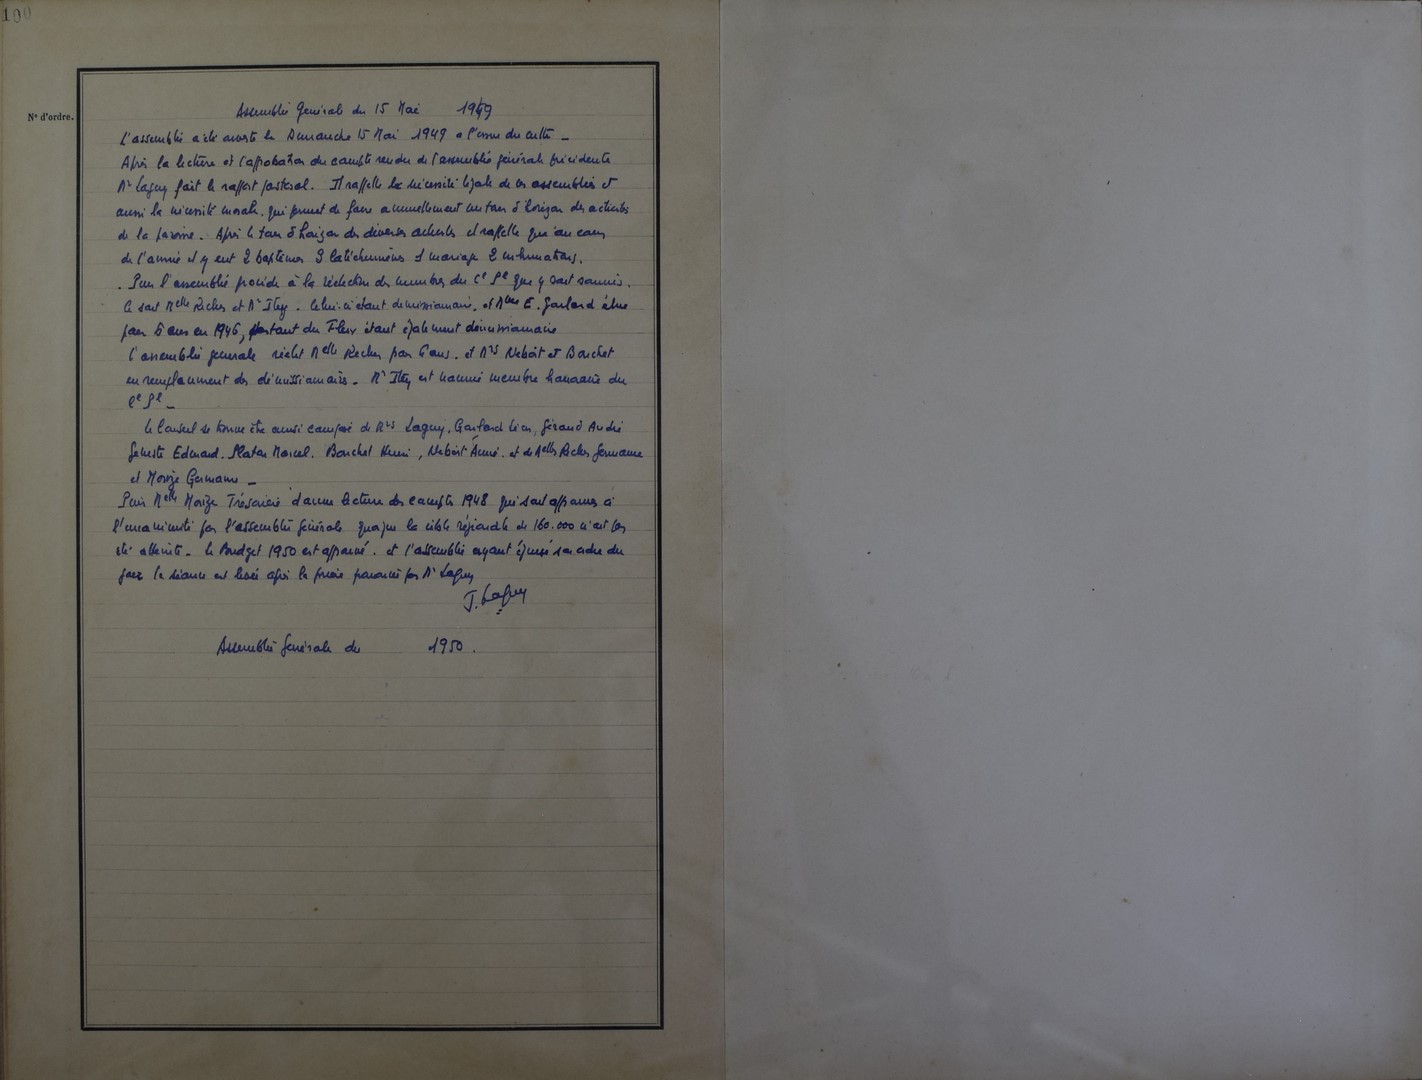 100
N° d'ordre.
Assemblée Générale du 15 Mai 1949
L'assemblée a été ouverte le Dimanche 15 Mai 1949 a l'issue du culte –
Après la lecture et l'approbation du compte rendu de l'assemblée générale précédente
Mr Laguy fait le rapport pastoral. Il rappelle la nécessité légale de ces assemblées et
aussi la nécessité morale, qui permet de faire annuellement un tour d'horizon des activités
de la paroisse. Après le tour d'horizon des diverses activités il rappelle que au cours
de l'année il y eut 2 baptêmes 3 catéchumènes 1 mariage 2 inhumations.
. Puis l'assemblée procède à la réélection des membres du Cl Pl que y sont soumis.
Ce sont Melle Recles et Mr . Celui-ci étant démissionnaire, et Mme E. Garland élue
pour 6 ans en 1946, partant du étant également démissionnaire
l'assemblée générale réélit Melle pour 6 ans. et Mrs Neboit et Bouchet
en remplacement des démissionnaires – Mr est nommé membre honoraire du
Cl Pl –
Le Conseil se trouve être ainsi composé de Mrs Laguy, Garland Léon, Géraud André
Edouard. Platon Marcel. Bouchet Henri, Neboit Aimé. et de Melles Germaine
et Morize Germaine –
Puis Melle Morize Trésorière donne lecture des comptes 1948 qui sont approuvés à
l'unanimité par l'assemblée générale quoique la cible régionale de 160.000 n'ait pas
été atteinte – Le Budget 1950 est approuvé. et l'assemblée ayant épuisé son ordre du
jour la séance est levée après la prière prononcée par Mr Laguy
J. Laguy
Assemblée Générale du 1950.